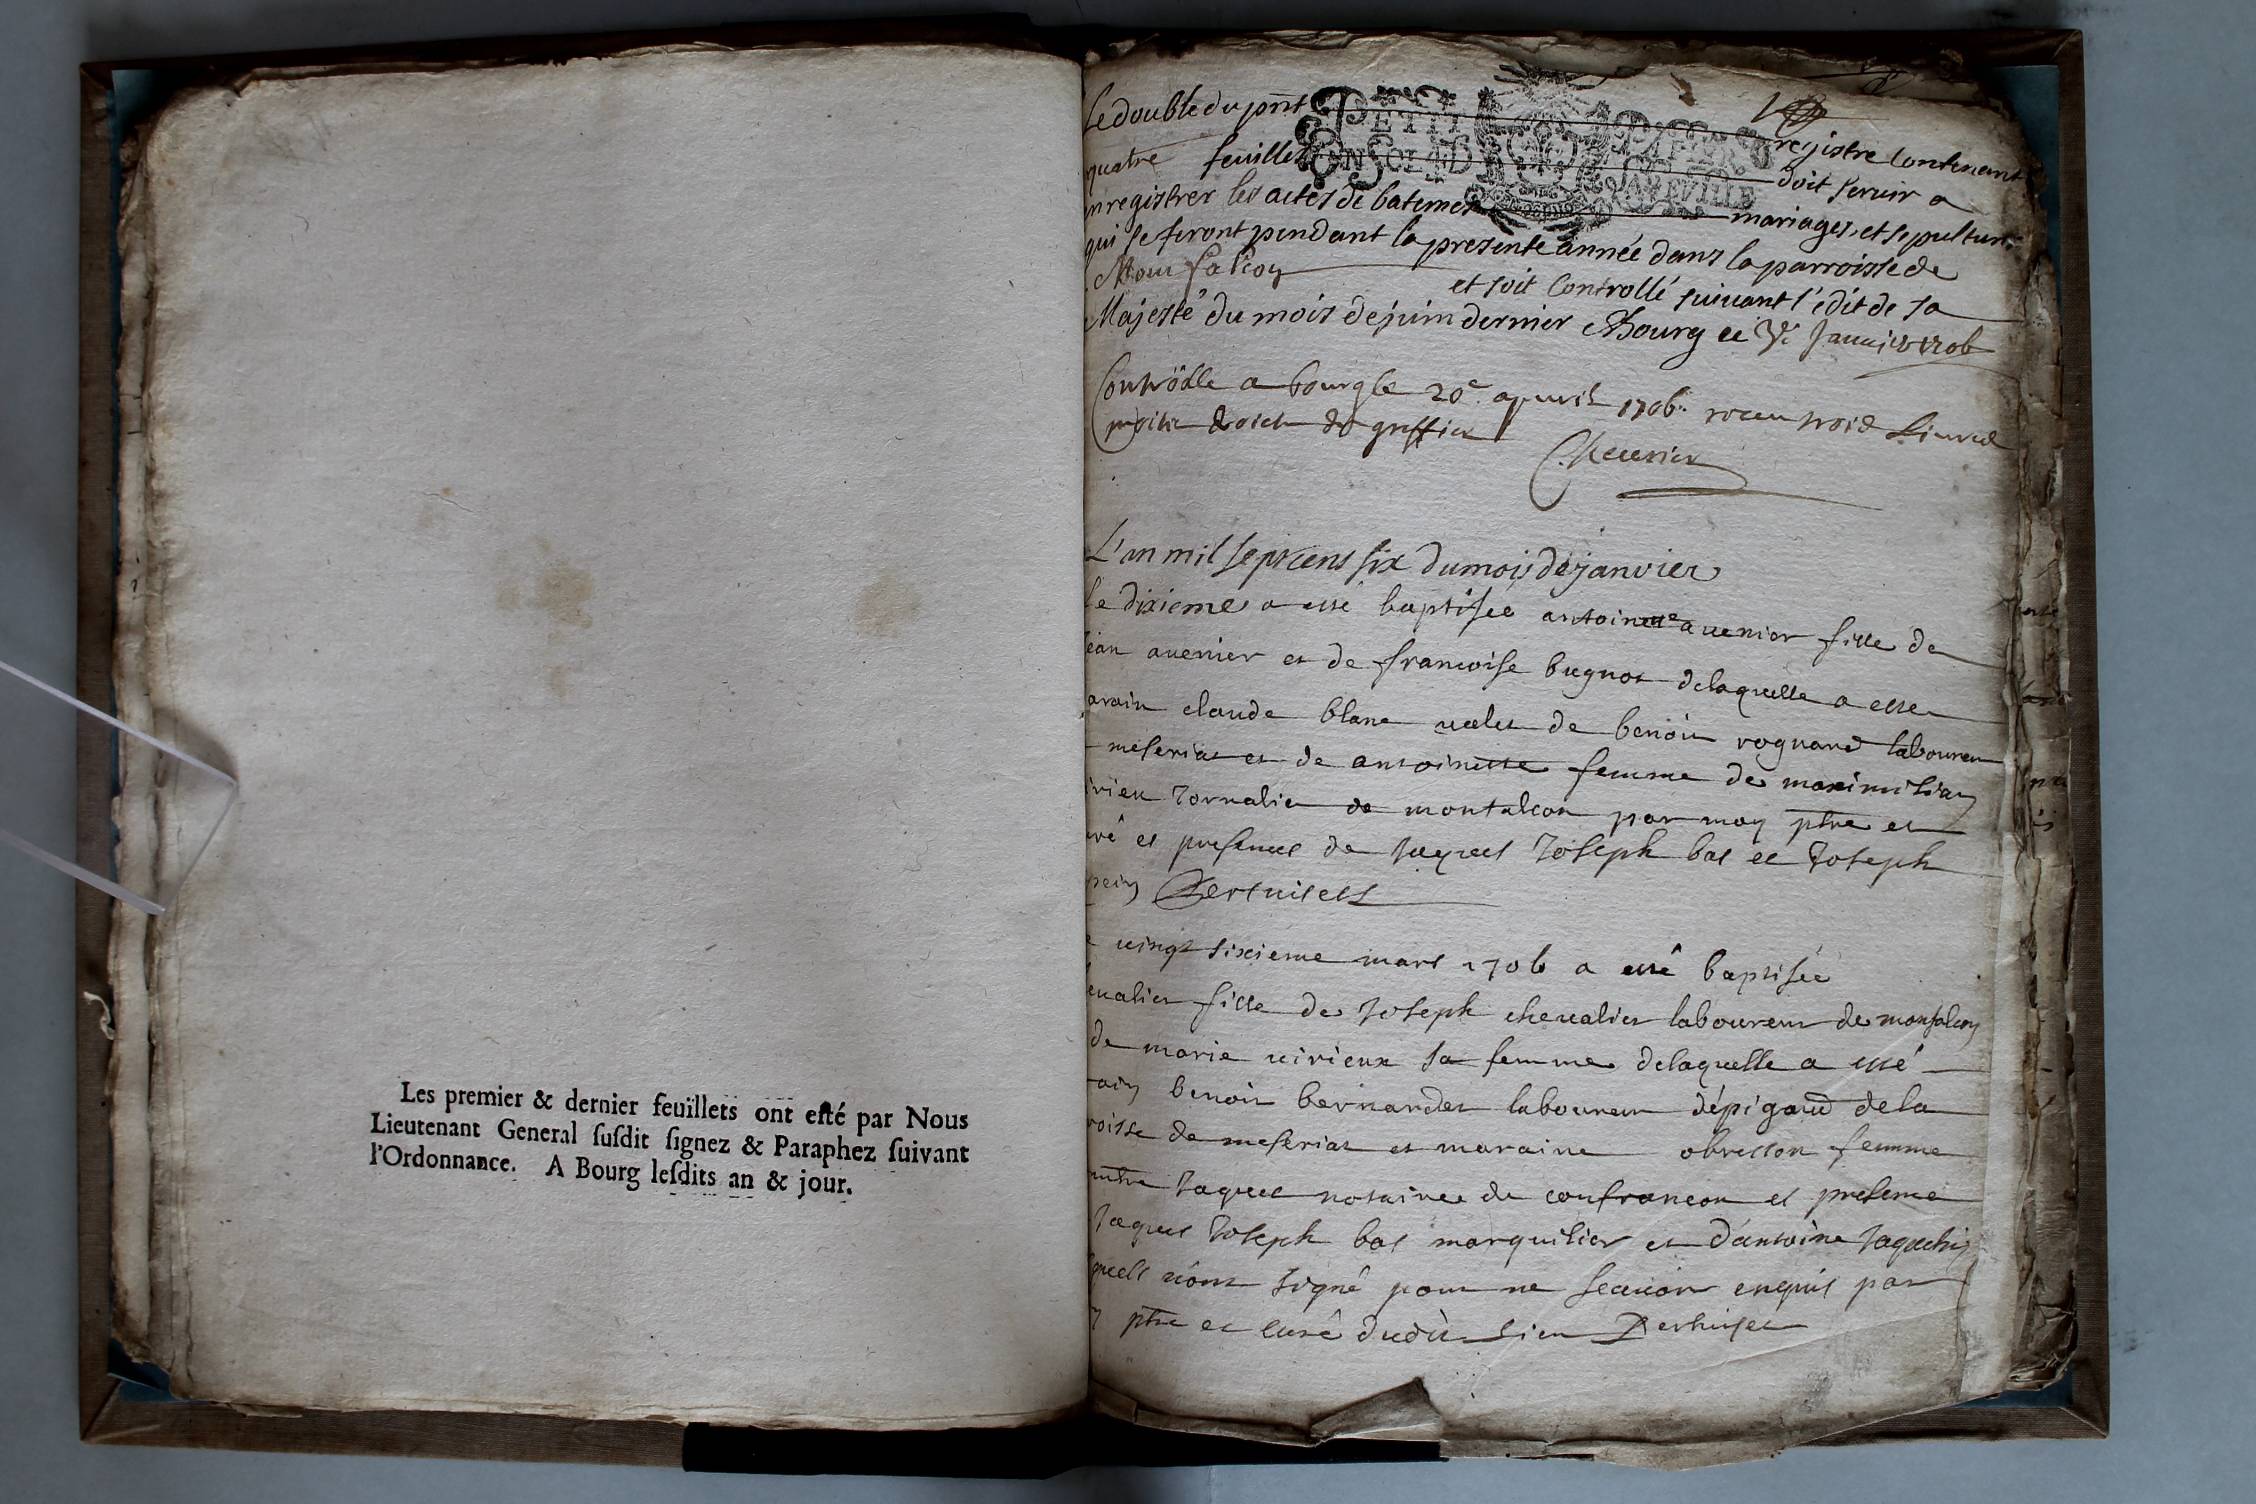 Les premier & dernier feuillets ont esté par Nous
Lieutenant General susdit signez & Paraphez suivant
l'Ordonnance. A Bourg lesdits an & jour.
Le double du pnt registre contenant
PETIT PAPIER
quatre feuillets doit servir a
EN SOL LA FEVILLE
enregistrer les actes de batemes mariages, et sepultures
qui se feront pendant la presente année dans la parroisse de
Montfalcon et soit Controllé suivant l'edit de sa
Majesté du mois de juin dernier A Bourg ce Janvier 1706
Controlle a bourg le 20e apvril 1706 receu trois Livres
moitie droict du greffier
Cheurier
L'an mil sept cens six du mois de janvier
le dixieme a esté baptisée antoinette auenier fille de
jean auenier et de francoise bugnot delaquelle a esté
parain claude blanc valet de benoit rognard laboureur
meseriat et de antoinette femme de maximilian
virieu Jornalier de montfalcon par moy ptre et
curé et presence de Jaques Joseph bas et Joseph
e vingt sixieme mars 1706 a esté baptisée
evalier fille de Joseph chevalier laboureur de monfalcon
de marie virieux sa femme delaquelle a esté
rain benoit bernardet laboureur d'épigaud de la
roisse de meseriat et maraine obresson femme
Jaques notaire de confrancon et presence
Jaques Joseph bas marguilier et d'antoine Jaquchi
quels n'ont signé pour ne scavoir enquis par
ptre et curé dudit lieu